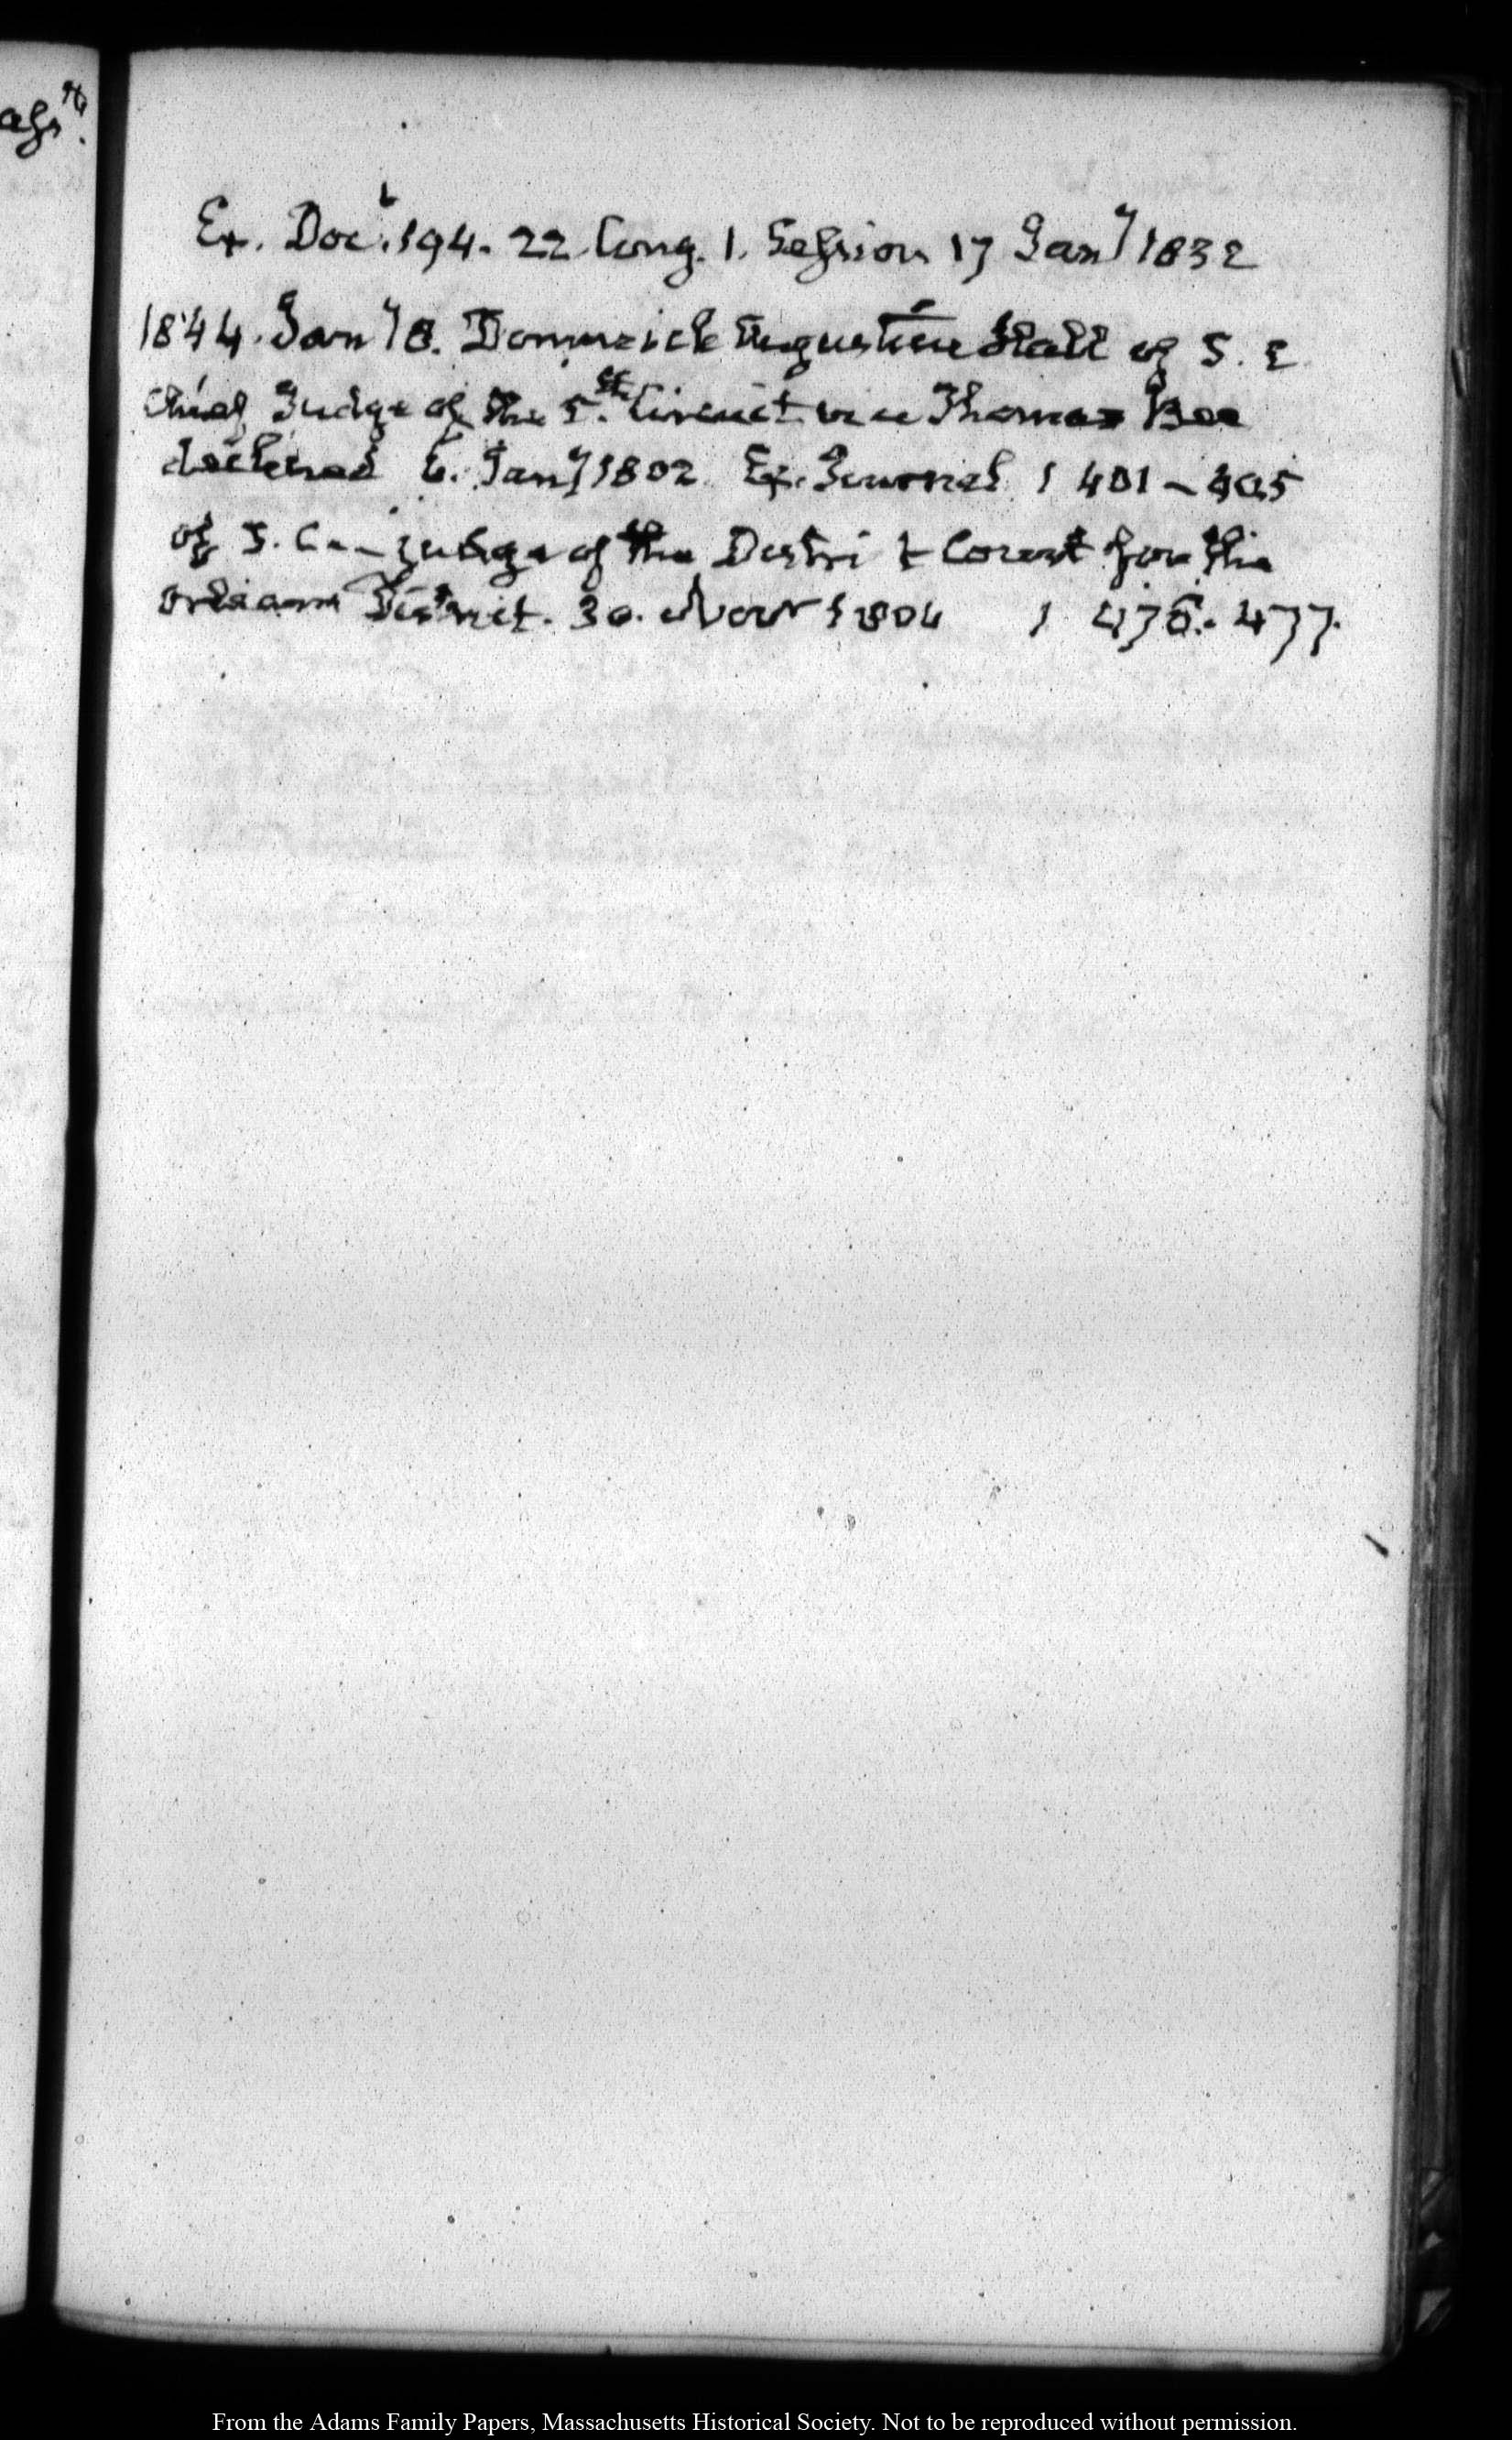 Ex. Doct. 194. 22 Cong. 1. Session 17 Jany 1832
1844. Jany 8. Dominick Augustin Hall of S. C
Chief Judge of the 5.th Circuit vice Thomas Bee
declined 6. Jany 1802 Ex. Journal 1 401 – 405
of S. C. – judge of the Distri t Court for the
Orleans District. 30. Novr 1804 1 476. 477.
From the Adams Family Papers, Massachusetts Historical Society. Not to be reproduced without permission.